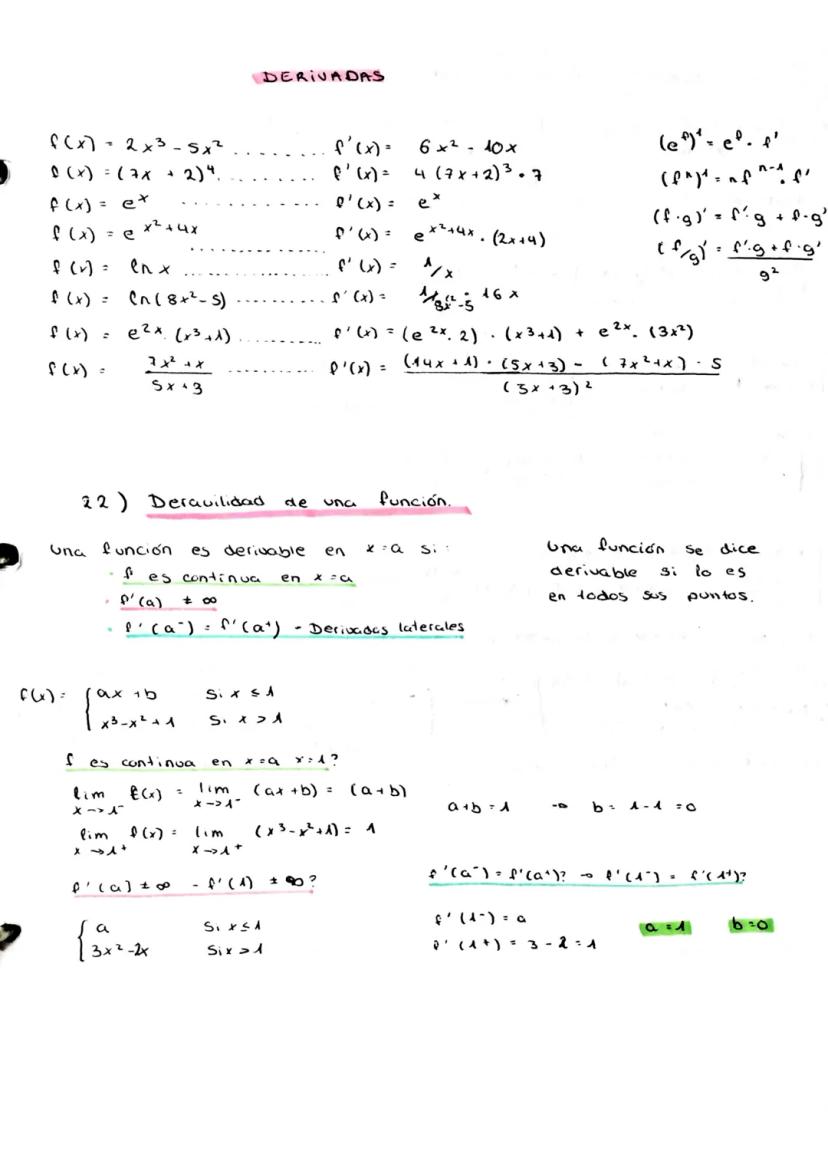 DERIVADAS
f(x) = 2x³ - 5x² ........ f'(x) = 6x² - 10x
f(x) = (7x + 2)⁴ ........ f'(x) = 4(7x+2)³ · 7
f(x) = eˣ ........ f'(x) = eˣ
f(x) = e^(x²+4x) ........ f'(x) = e^(x²+4x) · (2x+4)
f(x) = ln x ........ f'(x) = 1/x
f(x) = ln(8x²-5) ........ f'(x) = 1/8x²-5 · 16x
f(x) = e²ˣ · (x³+1) ........ f'(x) = (e²ˣ · 2) · (x³+1) + e²ˣ · (3x²)
f(x) = 7x²+x / 5x+3 ........ f'(x) = (14x+1) · (5x+3) - (7x²+x) · 5 / (3x+3)²
(eᶠ)' = eᶠ · f'
(fⁿ)' = nfⁿ⁻¹ · f'
(f·g)' = f'·g + f·g'
(f/g)' = f'·g + f·g' / g²
22) Deravilidad de una función.
Una función es derivable en x=a si:
· f es continua en x=a
· f'(a) ≠ ∞
· f'(a⁻) = f'(a⁺) - Derivadas laterales
Una función se dice
derivable si lo es
en todos sus puntos.
f(x) = { ax + b si x ≤ 1
x³-x²+1 si x > 1
f es continua en x=a x=1?
lim x->1⁻ f(x) = lim x->1⁻ (ax+b) = (a+b)
lim x->1⁺ f(x) = lim x->1⁺ (x³-x²+1) = 1
a+b=1 -> b = 1-1 = 0
f'(a) ≠ ∞ - f'(1) ≠ ∞?
{ a si x ≤ 1
3x²-2x si x > 1
f'(a⁻) = f'(a⁺)? -> f'(1⁻) = f'(1⁺)?
f'(1-) = a
f'(1+) = 3 - 2 = 1
a=1 b=0